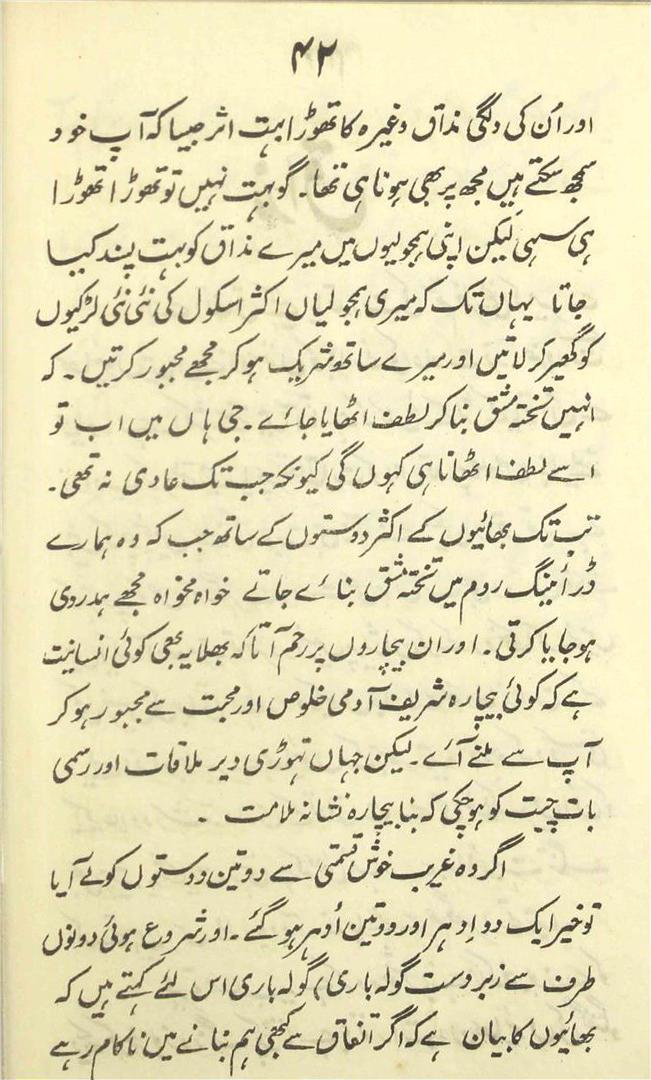 ۴۲
اور اُن کی دلگی مذاق وغیرہ کا تھوڑا بہت اثر جیسا کہ آپ خود
سمجھ سکتے ہیں مجھ پر بھی ہونا ہی تھا۔ گو بہت نہیں تو تھوڑا تھوڑا
ہی سہی لیکن اپنی ہمجولیوں میں میرے مذاق کو بہت پسند کیا
جاتا یہاں تک کہ میری ہمجولیاں اکثر اسکول کی نئی نئی لڑکیوں
کو گھیر کر لاتیں اور میرے ساتھ شریک ہو کر مجھے مجبور کرتیں۔ کہ
انہیں تختہ مشق بنا کر لطف اٹھایا جائے۔ جی ہاں میں اب تو
اسے لطف اٹھانا ہی کہوں گی کیونکہ جب تک عادی نہ تھی۔
تب تک بھائیوں کے اکثر دوستوں کے ساتھ جب کہ وہ ہمارے
ڈرائینگ روم میں تختہ مشق بنائے جاتے خواہ مخواہ مجھے ہمدردی
ہو جایا کرتی۔ اور ان بیچاروں پر رحم آتا کہ بھلا یہ بھی کوئی انسانیت
ہے کہ کوئی بیچارہ شریف آدمی خلوص اور محبت سے مجبور ہو کر
آپ سے ملنے آئے۔ لیکن جہاں تہوڑی دیر ملاقات اور رسمی
بات چیت کو ہو چکی کہ بنا بیچارہ نشانہ ملامت ۔
اگر وہ غریب خوش قسمتی سے دو تین دوستوں کو لے آیا
تو خیر ایک دو اِدہر اور دو تین اُدہر ہو گئے۔ اور شروع ہوئی دونوں
طرف سے زبردست گولہ باری) گولہ باری اس لئے کہتے ہیں کہ
بھائیوں کا بیان ہے کہ اگر اتفاق سے کبھی ہم بنانے میں ناکام رہے